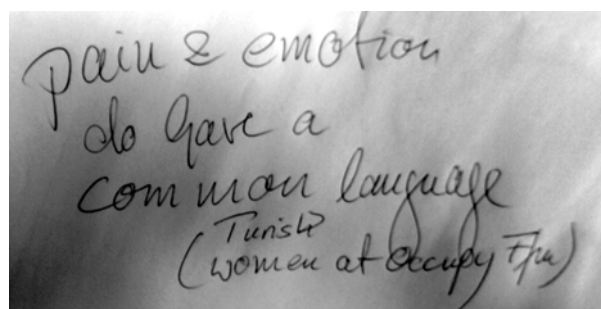 pain & emotion
do have a
common language
(Turish
women at occupy Ffm)